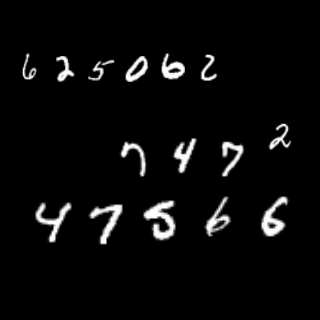 625062
7472
47566